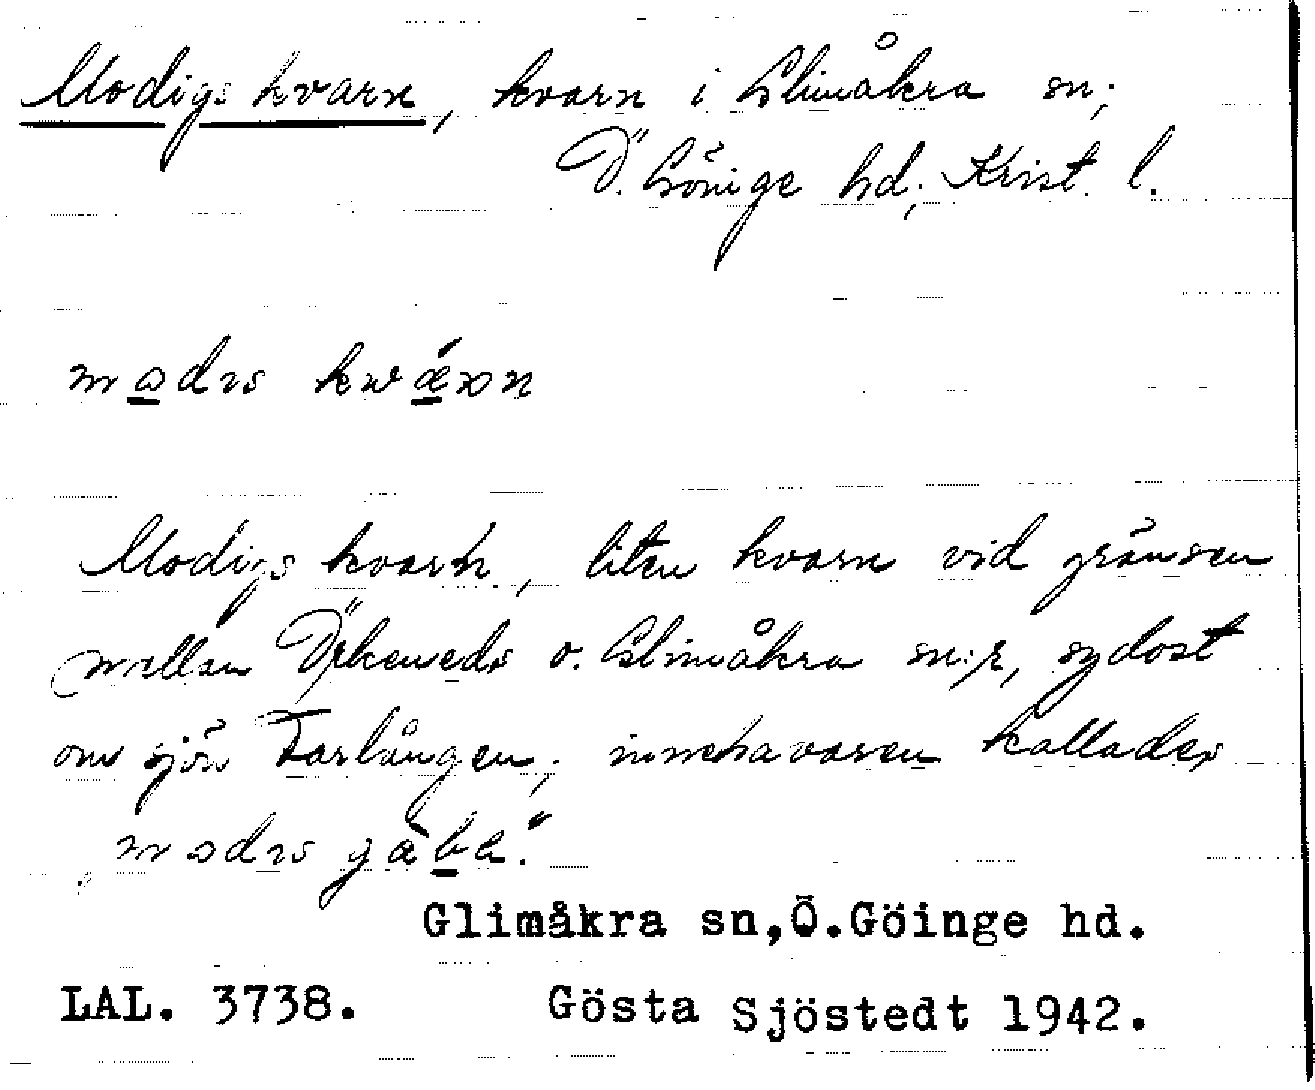 Modigs kvarn, kvarn i Glimåkra sn;
Ö. Göinge hd; Krist. l.
modis kwærn
Modigs kvarn, liten kvarn vid gränsen
mellan Örkeneds o. Glimåkra sn:r, sydost
om sjön Tarlången; innehavaren kallades
modis
Glimåkra sn,Ö.Göinge hd.
LAL. 3738. Gösta Sjöstedt 1942.